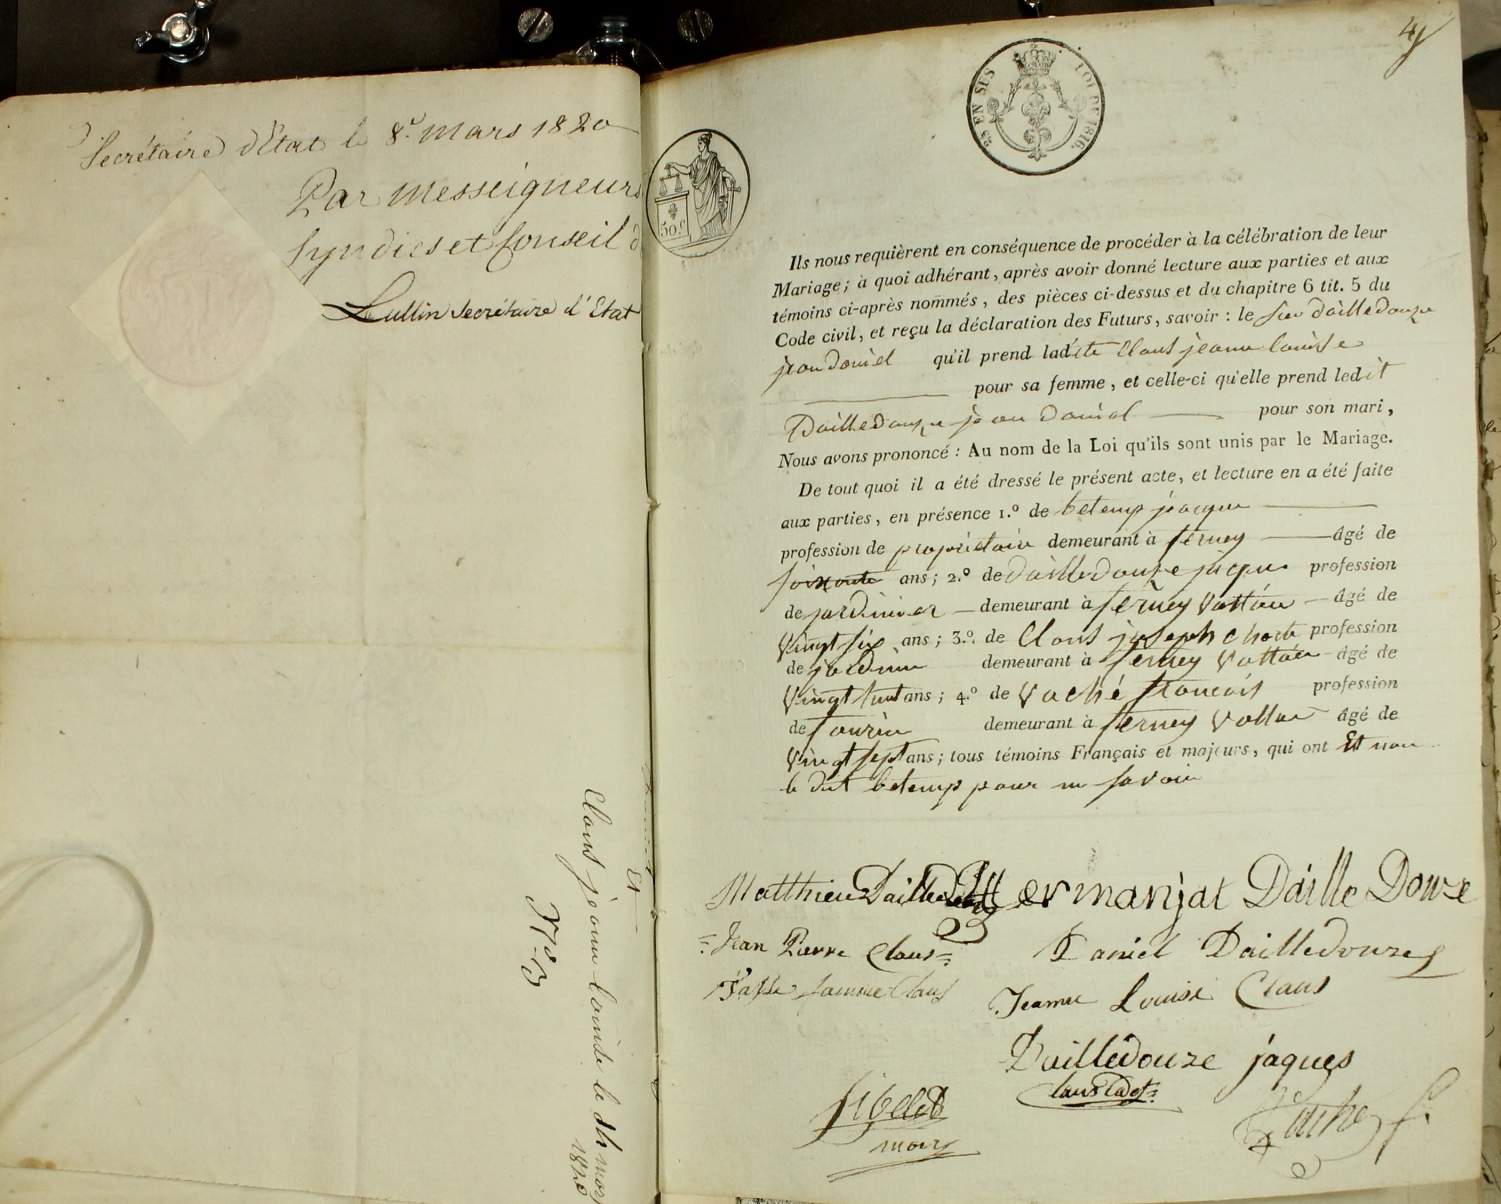 Secrétaire d'Etat le 8.e Mars 1820
Par Messeigneurs
Syndics et Conseil
Lullin Secrétaire d'Etat
Et
Claus jeanne Louise le 24 mars
1820
N.o 3
4
25 EN SUS
LOI DE 1816.
50.c
Ils nous requièrent en conséquence de procéder à la célébration de leur
Mariage; à quoi adhérant, après avoir donné lecture aux parties et aux
témoins ci-après nommés, des pièces ci-dessus et du chapitre 6 tit. 5 du
Code civil, et reçu la déclaration des Futurs, savoir : le sieur dailledouze
jean daniel qu'il prend ladite Claus jeanne louise
pour sa femme, et celle-ci qu'elle prend ledit
Dailledouze jean Daniel pour son mari,
Nous avons prononcé : Au nom de la Loi qu'ils sont unis par le Mariage.
De tout quoi il a été dressé le présent acte, et lecture en a été faite
aux parties, en présence 1.º de betemp jacque
profession de propriétaire demeurant à ferney âgé de
soixante ans; 2.º de dailledouze jaque profession
de jardinier demeurant à ferney Vottaire âgé de
vingt six ans; 3.º de Claus joseph profession
de jardinie demeurant à ferney Vottaire âgé de
vingt huit ans; 4.º de Vaché francois profession
de demeurant à ferney Voltaire âgé de
vingt sept ans; tous témoins Français et majeurs, qui ont Et non
le dit betemp pour ne savoir
Matthieu Dailledouze Hermanjat Daille Douze
Jean Pierre Claus Daniel Dailledouze
Claus Jeanne Louise Claus
Dailledouze jaques
Claus Cadet
maire Vaché f.